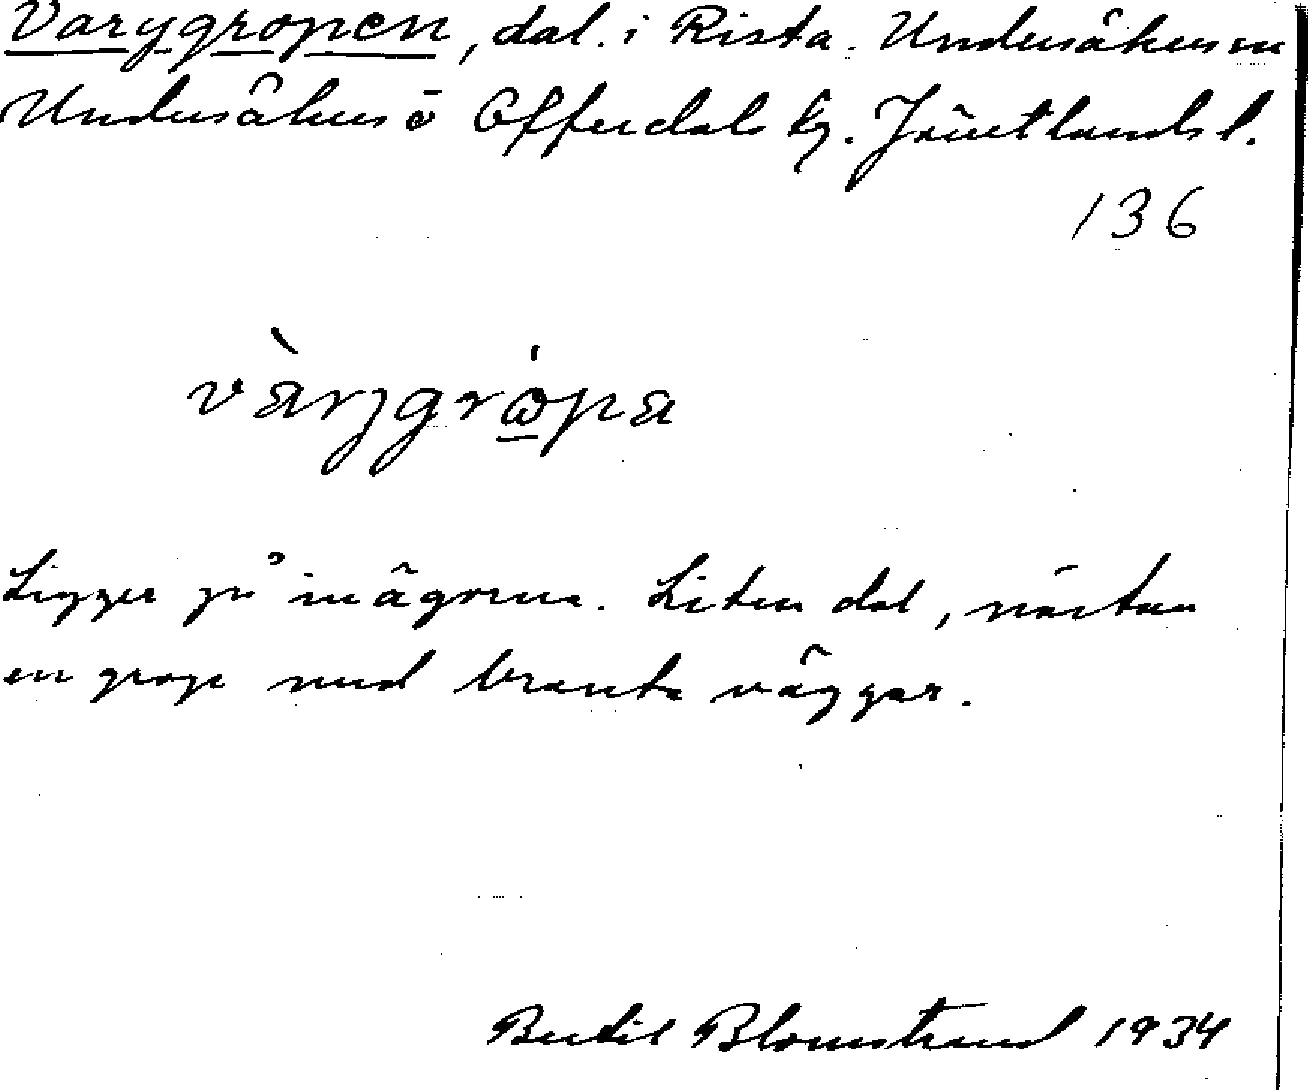 Vargygropen, dal. i Rista. Undersåkers sn
Undersåkers o Offerdals tg. Jämtlands l.
136
vàrggrópa
Ligger på inägorna. Liten dal, nästan
en grop med branta väggar.
Bertil Blomstrand 1934